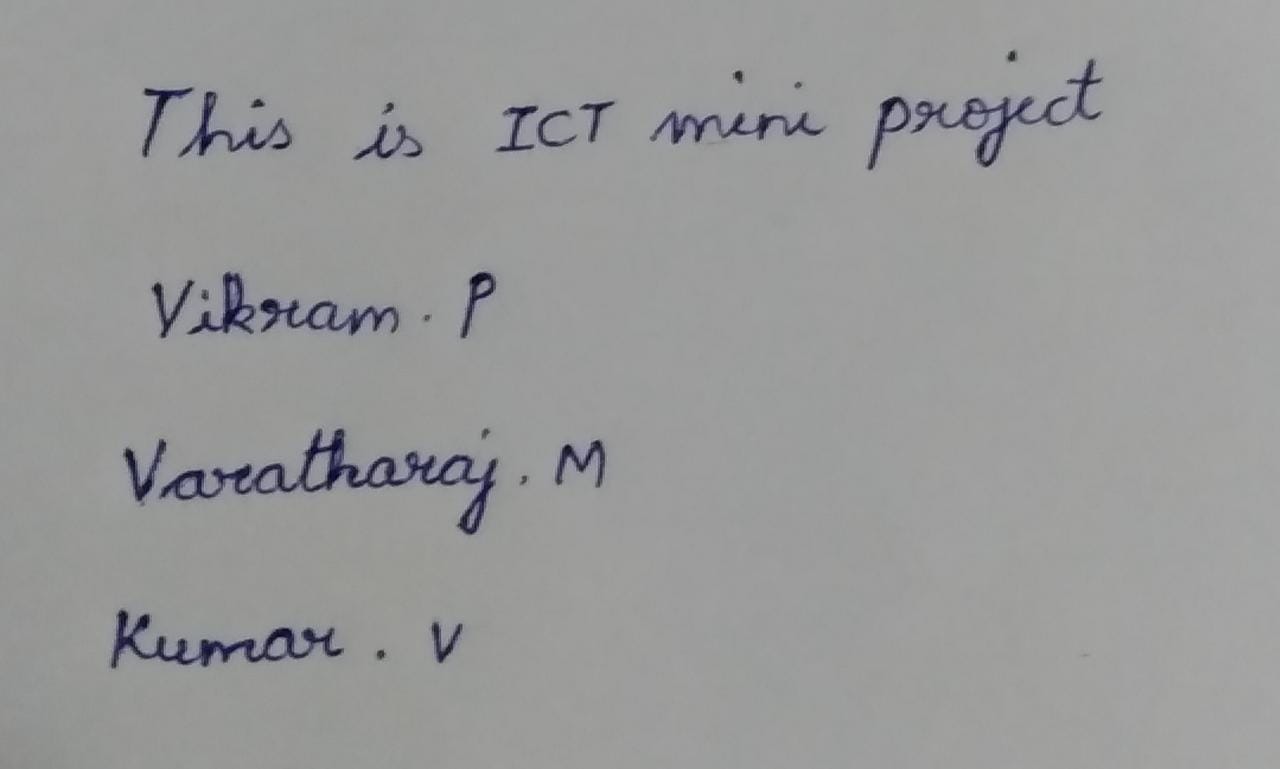 This is ICT mini project
Vikram. P
Varatharaj. M
Kumar. V